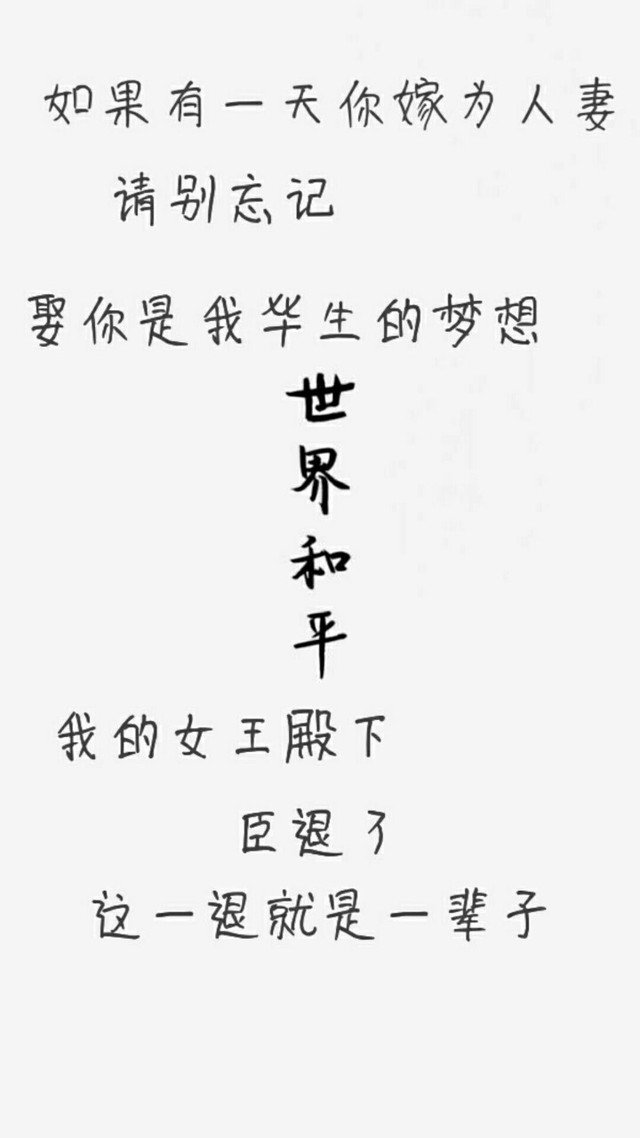 如果有一天你嫁为人妻
请别忘记
娶你是我毕生的梦想
世界和平
我的女王殿下
臣退了
这一退就是一辈子